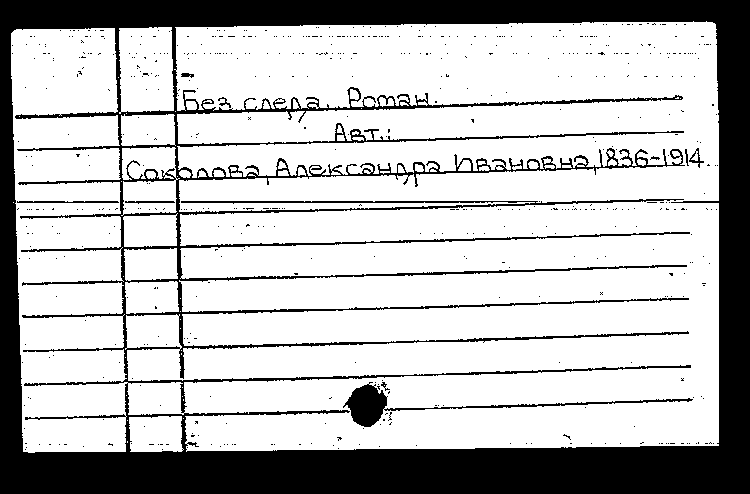 Без следа. Роман.
Авт.:
Соколова, Александра Ивановна, 1836-1914.